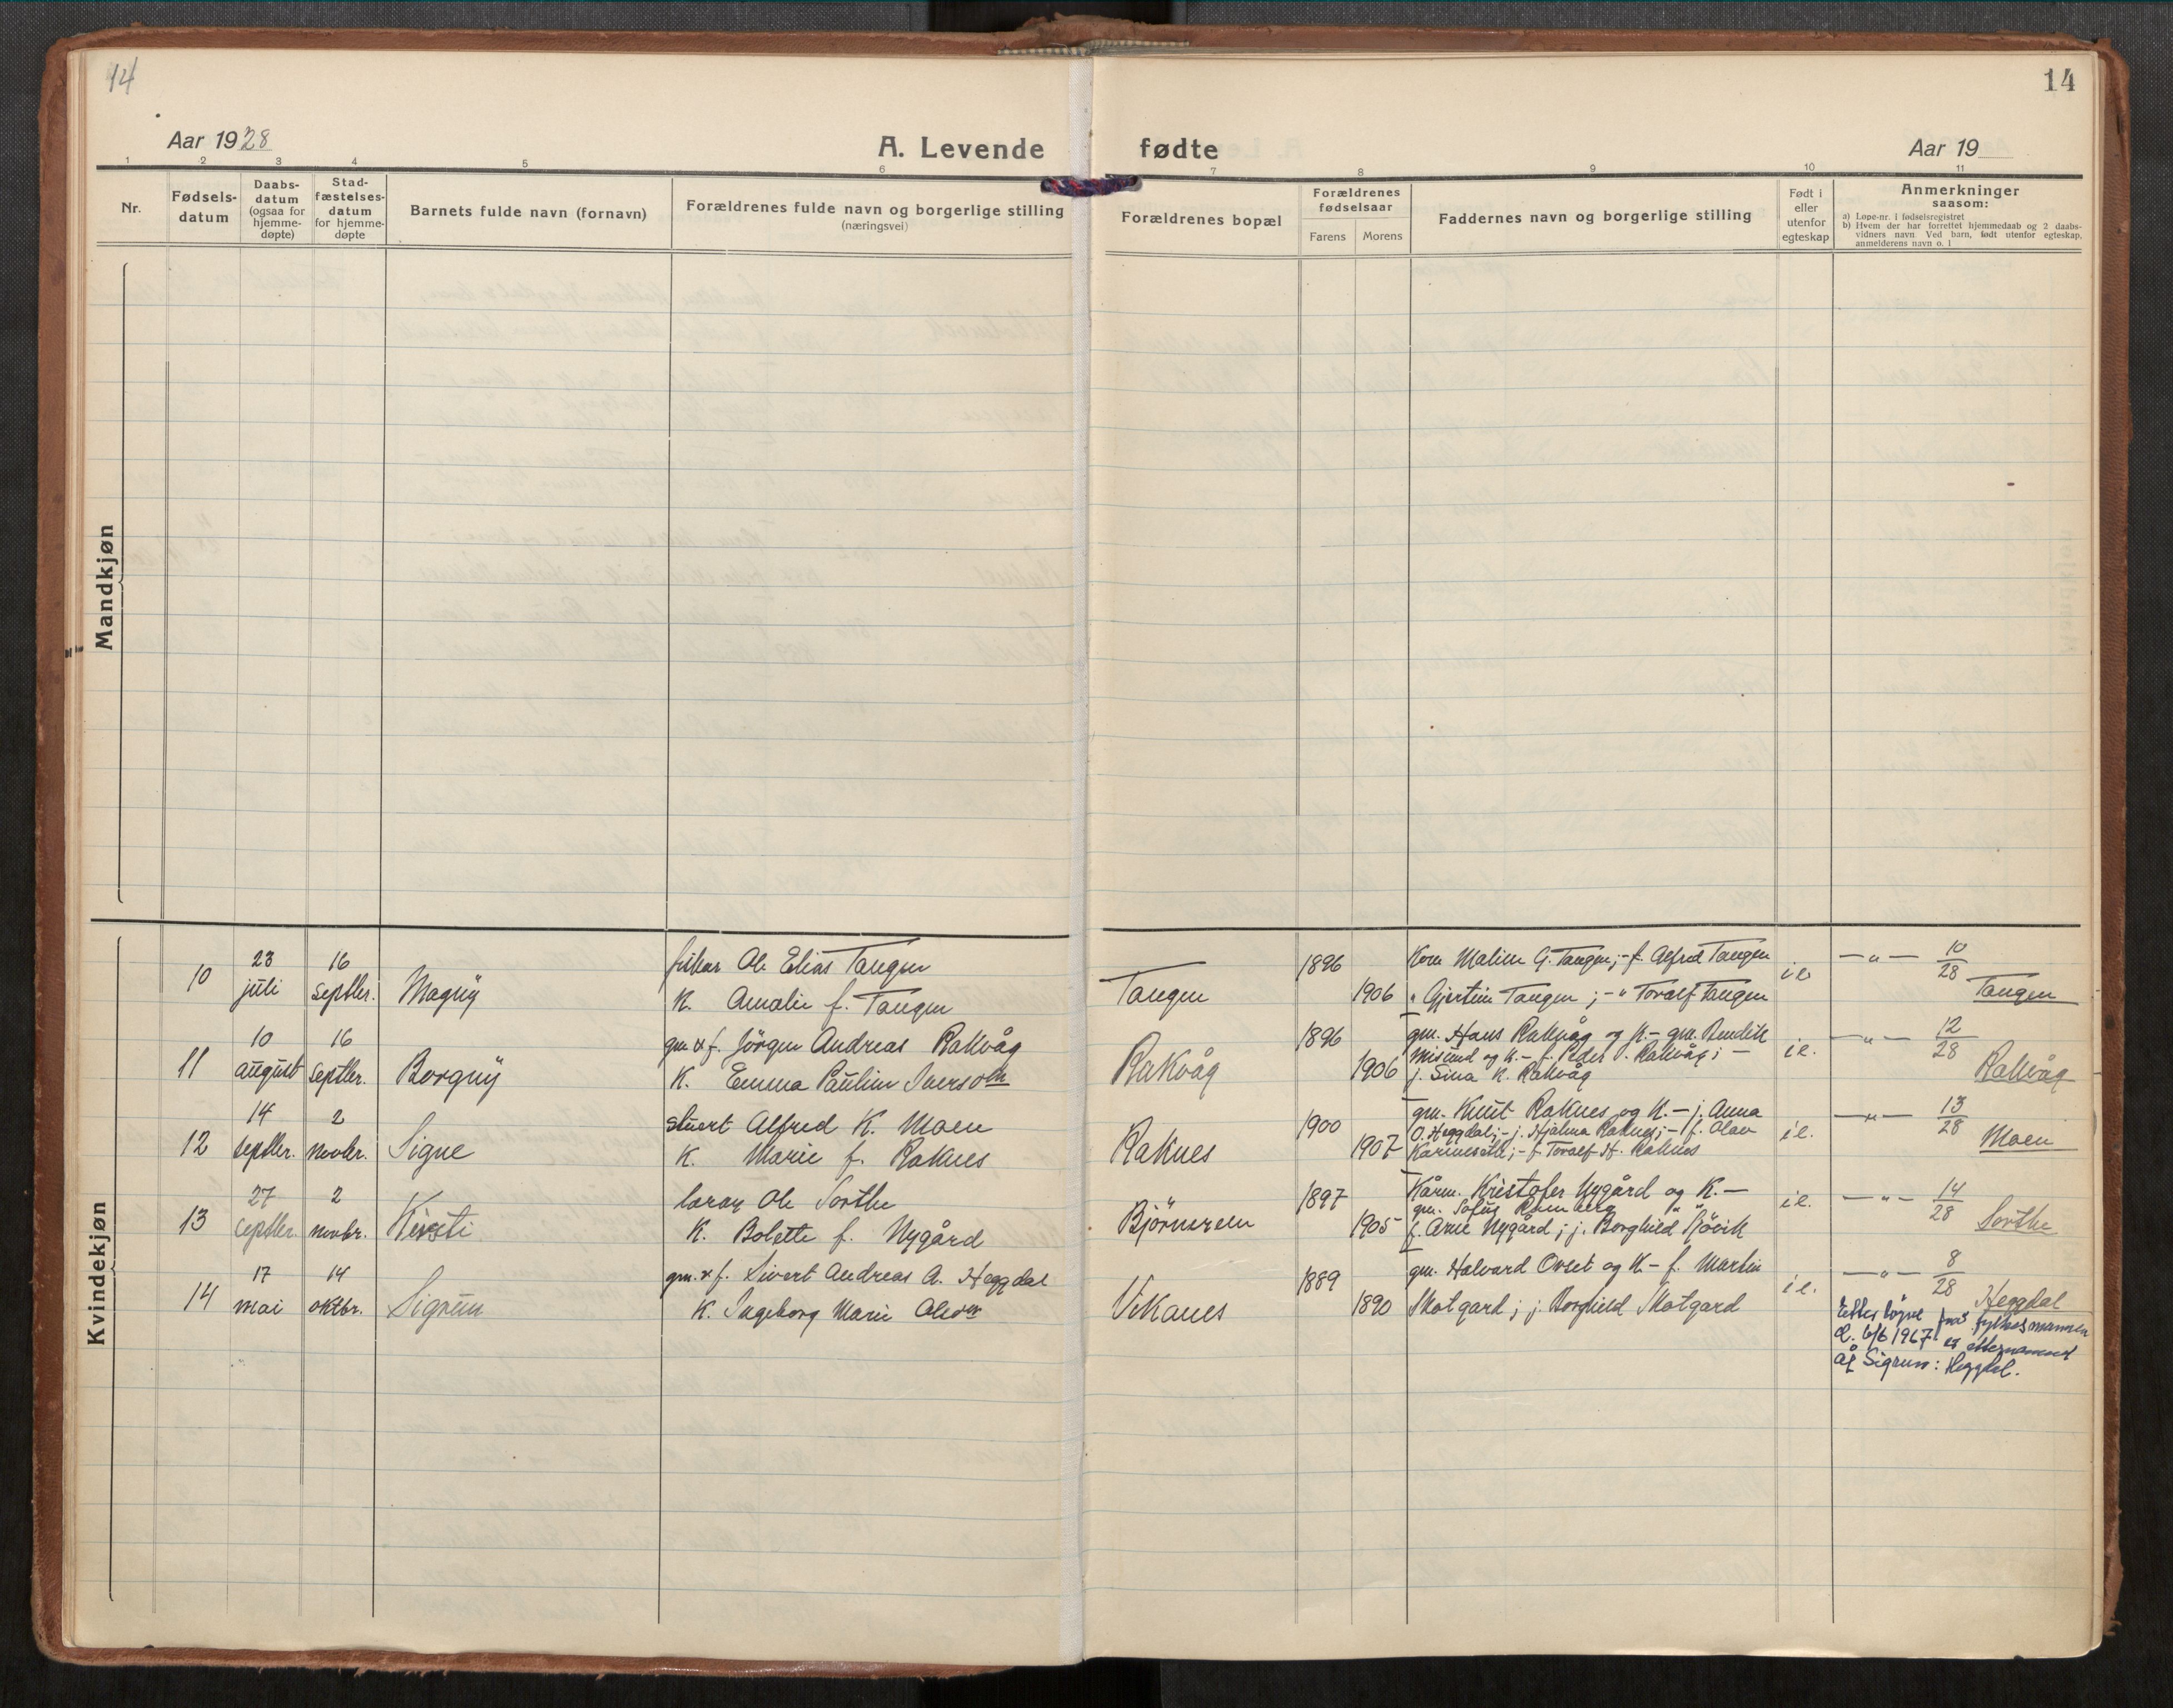 14
14
Aar 1928
A. Levende
fødte
Aar 19
1 2 3 4 5 6 7 8 9 10 11
Nr.
Fødsels-
datum
Daabs-
datum
(ogsaa for
hjemme-
døpte)
Stad-
fæstelses-
datum
for hjemme-
døpte
Barnets fulde navn (fornavn)
Forældrenes fulde navn og borgerlige stilling
(næringsvei)
Forældrenes bopæl
Forældrenes
fødselsaar
Farens Morens
Faddernes navn og borgerlige stilling
Født i
eller
utenfor
egteskap
Anmerkninger
saasom:
a) Løpe-nr. i fødselsregistret
b) Hvem der har forrettet hjemmedaab og 2 daabs-
vidners navn Ved barn, født utenfor egteskap,
anmelderens navn o. l
Mandkjøn
Kvindekjøn
23 16 fisker Ole Elias Tangen 1896 Kone Maline G. Tangen; - f. Alfred Tangen i e. — " — 10/28
10 juli septbr. Magny K. Amalie f. Tangen Tangen 1906 " Gjertine Tangen ; - " Toralf Tangen Tangen
10 16 gm. & f. Jörgen Andreas Rakvåg 1896 gm. Hans Rakvåg og K. - gm. Bendik — " — 12/28
11 august septbr. Borgny K. Emma Pauline Iversdtr Rakvåg 1906 Misund og K. - f. Peder P. Rakvåg ; - i e. Rakvåg
j. Sina K. Rakvåg
14 2 stuert Alfred K. Moen 1900 gm. Knut Raknes og K. - j. Anna — " — 13/28
12 septbr. novbr. Signe K. Marie f. Raknes Raknes 1907 O. Heggdal; - j. Hjalma Raknes; - f. Olav i e. Moen
Karineseth; - f. Toralf H. Raknes
27 2 lærar Ole Sorthe 1897 Kårm. Kristofer Nygård og K. - i e. — " — 14/28
13 septbr. novbr. Kirsti K. Bolette f. Nygård Björnerem 1905 gm. Sofus " "
f. Arne Nygård ; j. Borghild Sjövik Sorthe
17 14 gm. & f. Sivert Andreas A. Heggdal 1889 gm. Halvard Orset og K - f. Martin i e. — " — 8/28
14 mai oktbr. Sigrun K. Ingeborg Marie Olsdtr Vikanes 1890 Skotgard ; j. Borghild Skotgard Heggdal
Etter løyve frå fylkesmannen
d. 6/6 1967 er etternamnet
åt Sigrun: Heggdal.